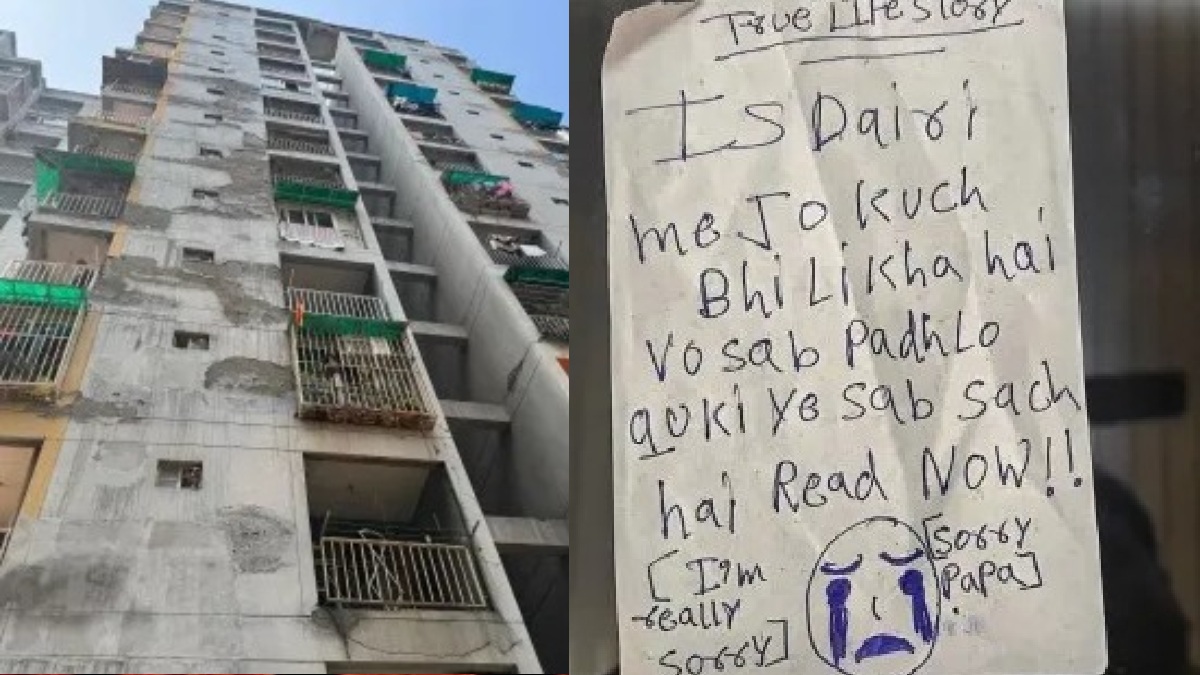 True Life Story
Is Dairi
me Jo kuch
Bhi Likha hai
Vo sab Padh Lo
quki ye sab sach
hai Read NOW!!
[I'm really sorry]
[sorry Papa]